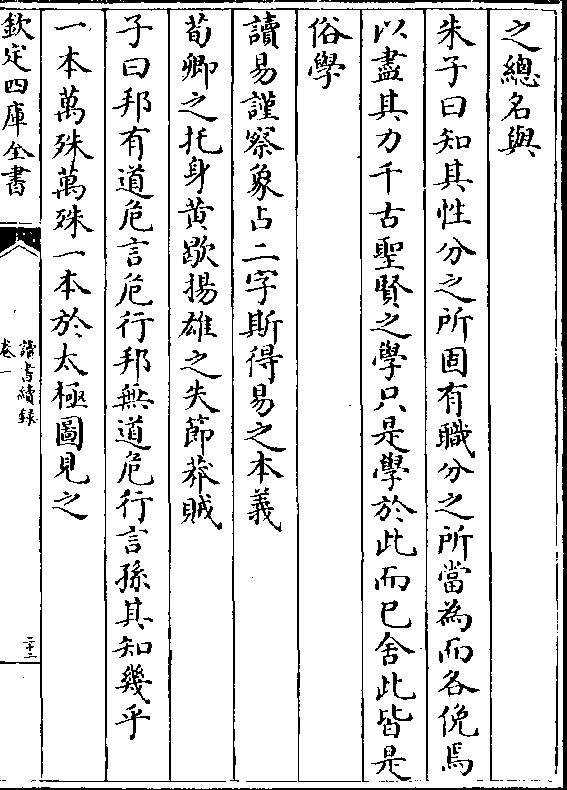 之總名與
朱子曰知其性分之所固有職分之所當為而各俛焉
以盡其力千古聖賢之學只是學於此而已舍此皆是
俗學
讀易謹察象占二字斯得易之本義
荀卿之托身黄歇揚雄之失節莽賊
子曰邦有道危言危行邦無道危行言孫其知幾乎
一本萬殊萬殊一本於太極圖見之
欽定四庫全書
讀書續録
卷一
二十三